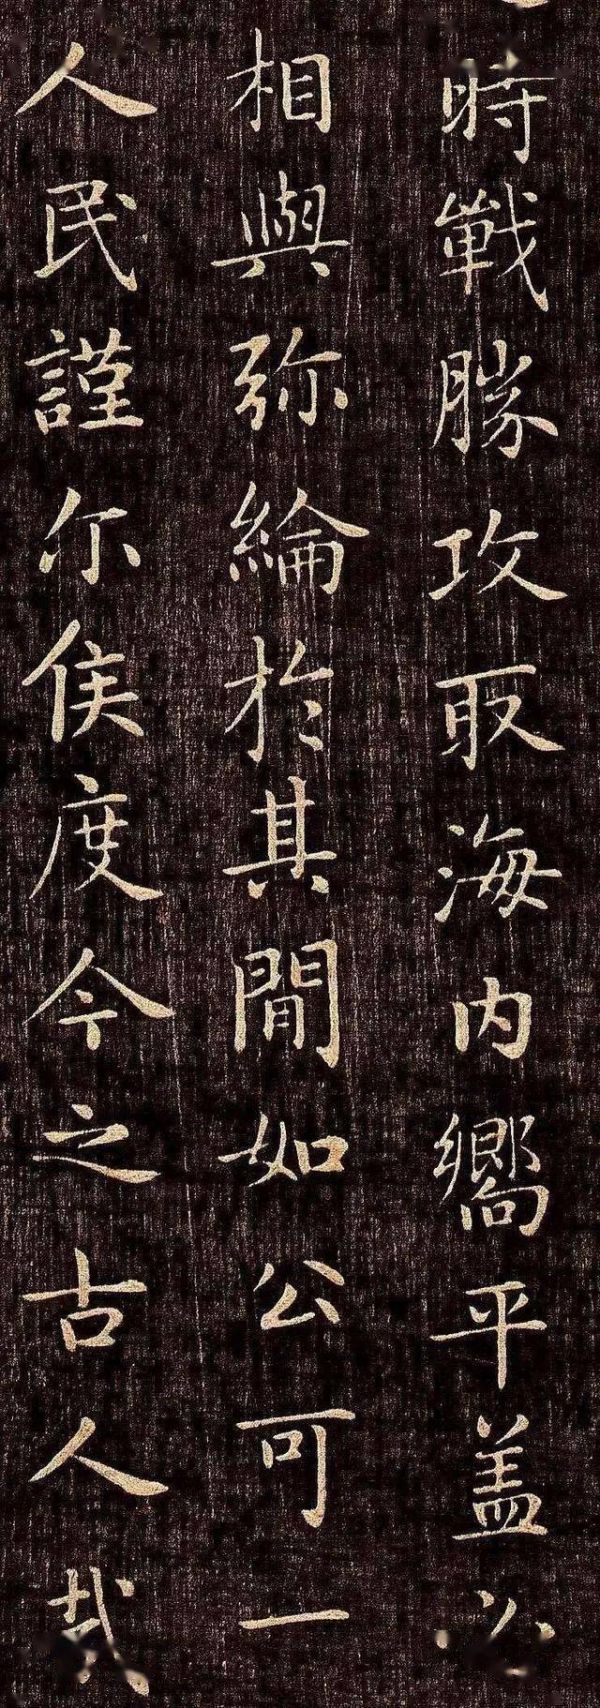 時戰勝攻取海内嚮平盖必
相與弥綸於其間如公可一
人民謹尔侯度今之古人哉